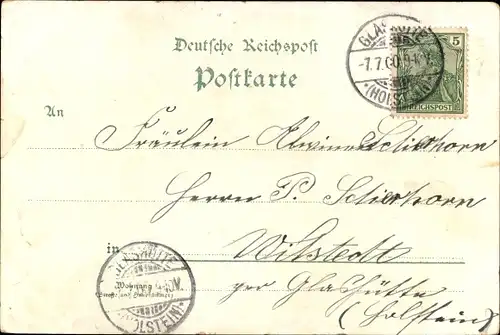 Deutsche Reichspost
Postkarte
GLASHÜTTE
-7.7.00.9-10.V.
*(HOLSTEIN)*
5
REICHSPOST
An
Fräulein Alwine Schierhorn
Herrn P. Schierhorn
in Wilstedt
per Glashütte
(Holstein)
GLASHÜTTE
(HOLSTEIN)
Wohnung
(Straße und Hausnummer)